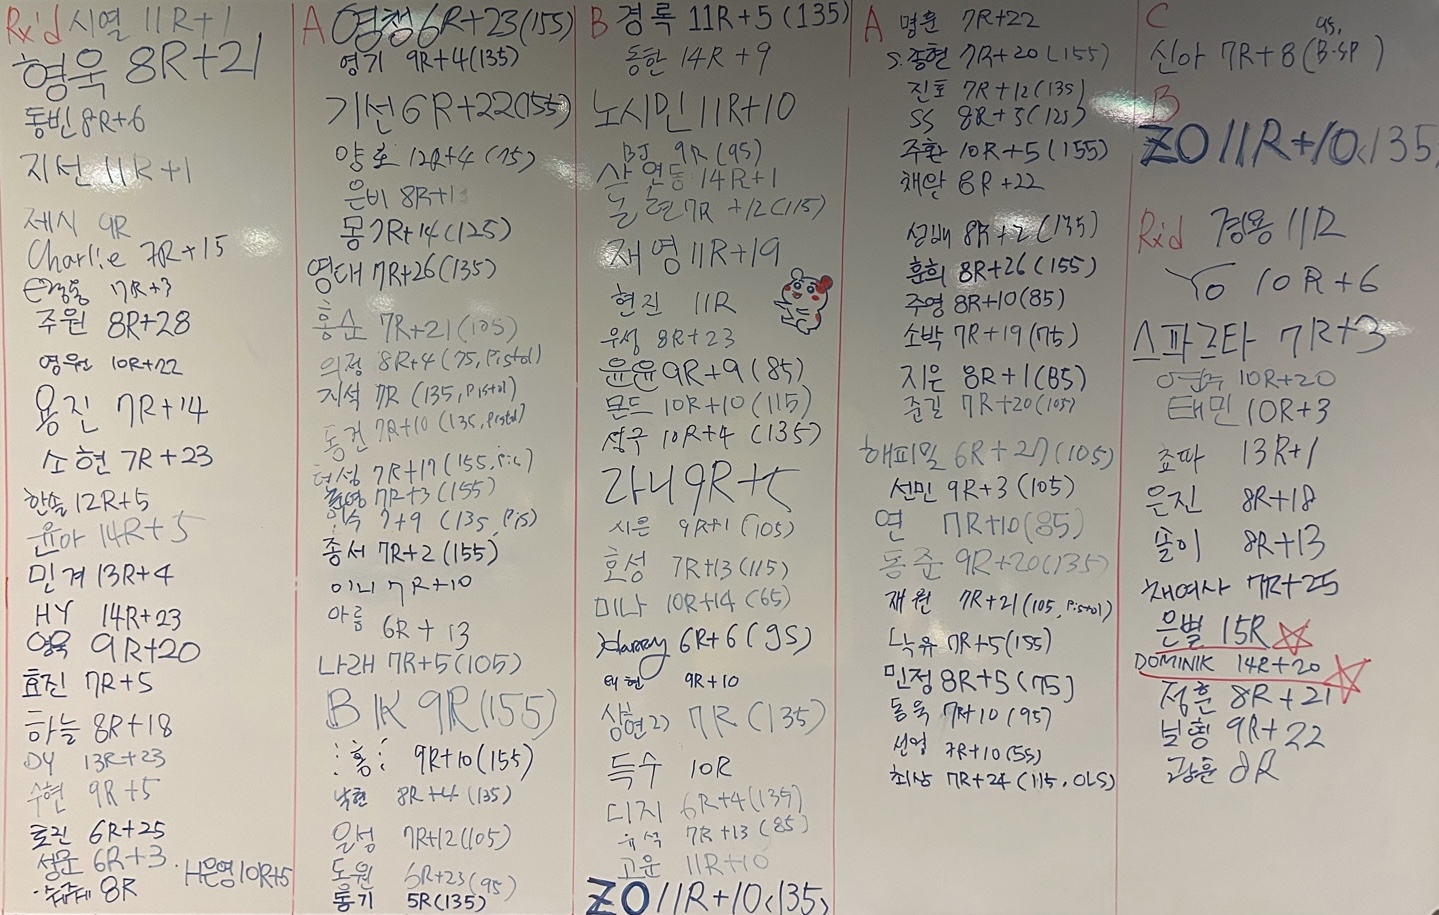 Rx'd 시열 11R+1
형욱 8R+21
동빈 8R+6
지선 11R+1
제시 9R
Charlie 7R+15
7R+3
주원 8R+28
영원 10R+22
용진 7R+14
소현 7R+23
한솔 12R+5
윤아 14R+5
민겨 13R+4
HY 14R+23
영욱 9R+20
효진 7R+5
하늘 8R+18
DY 13R+23
수현 9R+5
효진 6R+25
성문 6R+3
H은영 10R+5
8R
A 영챙 6R+23(155)
영기 9R+4(135)
기선 6R+22(155)
양호 12R+4(75)
은비 8R+13
몽 7R+14(125)
영대 7R+26(135)
홍순 7R+21(105)
의정 8R+4(75, Pistol)
지석 7R(135, Pistol)
동건 7R+10(135, Pistol)
7R+17(155, Pis)
7R+3(155)
7+9(135, Pis)
종서 7R+2(155)
이리 7R+10
아름 6R+13
나래 7R+5(105)
BK 9R(155)
:홍: 9R+10(155)
낙현 8R+4(135)
일성 7R+12(105)
도원 6R+23(95)
통기 5R(135)
B 경록 11R+5(135)
동한 14R+9
노시민 11R+10
BJ 9R(95)
상연동 14R+1
7R+12(115)
재영 11R+19
현진 11R
우성 8R+23
윤윤 9R+9(85)
몬드 10R+10(115)
상구 10R+4(135)
라니 9R+5
시은 9R+1(105)
호성 7R+13(115)
미나 10R+14(65)
Harry 6R+6(95)
태현 9R+10
상현2) 7R(135)
득수 10R
디지 6R+4(135)
유석 7R+13(85)
고운 11R+10
ZO 11R+10(135)
A 명훈 7R+22
S.종현 7R+20(155)
진호 7R+12(135)
SS 8R+3(125)
주환 10R+5(155)
채완 8R+22
성배 8R+2(135)
훈희 8R+26(155)
주영 8R+10(85)
소박 7R+19(75)
지은 8R+1(85)
준길 7R+20(105)
해피밀 6R+27(105)
선민 9R+3(105)
연 7R+10(85)
동준 9R+20(135)
재원 7R+21(105, Pistol)
낙유 7R+5(155)
민정 8R+5(75)
동욱 7R+10(95)
선영 7R+10(55)
최상 7R+24(115, OLS)
C
신아 7R+8(95, B-SP)
B
ZO 11R+10(135)
Rx'd 경용 11R
YO 10R+6
스파르타 7R+3
10R+20
태민 10R+3
쵸파 13R+1
은진 8R+18
솔이 8R+13
채여사 7R+25
은별 15R
DOMINIK 14R+20
정훈 8R+21
보형 9R+22
광훈 8R